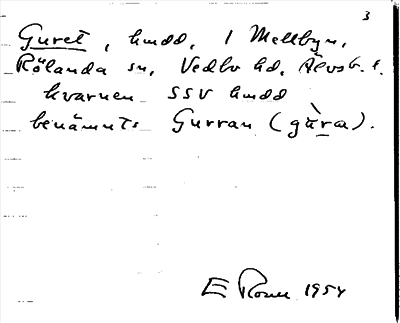 3
Guret, hmdd, i Mellbyn,
Rölanda sn, Vedbo hd, Älvsb. l.
kvarnen SSV hmdd
benämnts Gurran (gùra).
E Rosell 1954